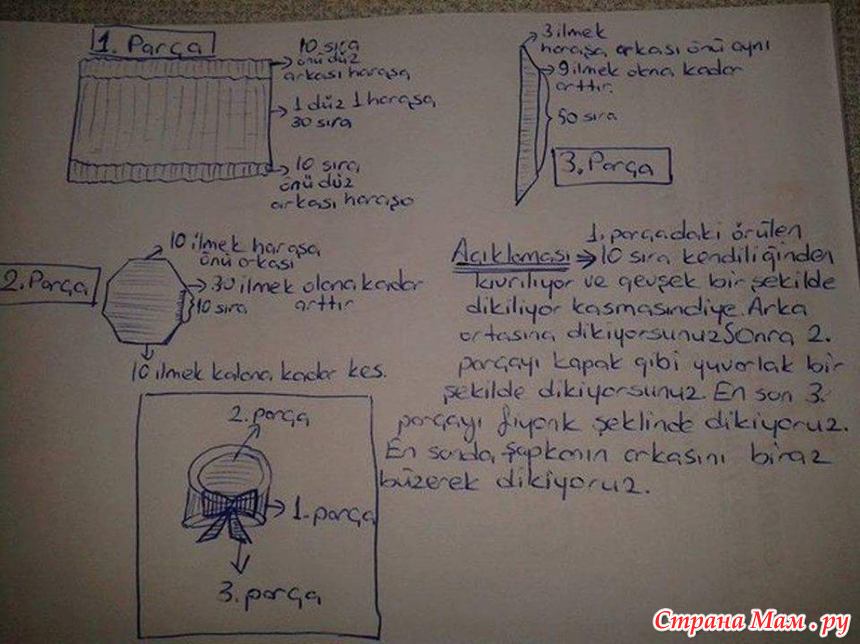 1. Parça
10 sıra
önü düz
arkası haraşa
1 düz 1 haraşa
30 sıra
10 sıra
önü düz
arkası haraşo
3 ilmek
haraşa arkası önü aynı
9 ilmek olana kadar
arttır.
50 sıra
3. Parça
2. Parça
10 ilmek haraşa
önü arkası
30 ilmek olana kadar
arttır
10 sıra
10 ilmek kalana kadar kes.
Açıklaması → 1. parçadaki örülen
10 sıra kendiliğinden
kıvrılıyor ve gevşek bir şekilde
dikiliyor kasmasındiye. Arka
ortasına dikiyorsunuz Sonra 2.
parçayı kapak gibi yuvarlak bir
şekilde dikiyorsunuz. En son 3.
parçayı fiyonk şeklinde dikiyoruz.
En sonda, şapkanın arkasını biraz
büzerek dikiyoruz.
2. parça
1. parça
3. parça
Страна Мам.ру